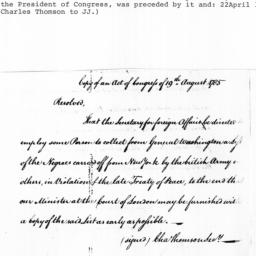 the President of Congress, was preceded by it and: 22April 1
Charles Thomson to JJ.)
Copy of an Act of Congress of 19th August 1785
Resolved,
That the Secretary for foreign Affairs be directed
employ some Person to collect from General Washington a
of the Negroes carried off from New York by the british Army
others, in Violation of the late Treaty of Peace, to the end th
our Minister at the Court of London may be furnished wit
a copy of the said List as early as possible. —
(signed) Cha Thomson Secy.